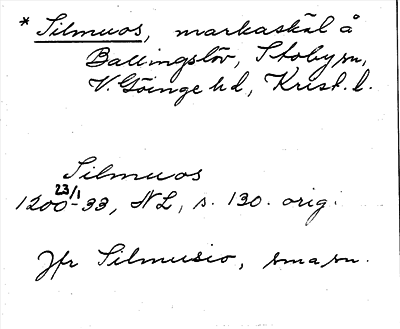 * Silmuos, markaskäl å
Ballingslöv, Stoby sn,
V. Göinge hd, Krist. l.
Silmuos
1200 23/1 -33, NL, s. 130. orig.
Jfr Silmusio, sma sn.